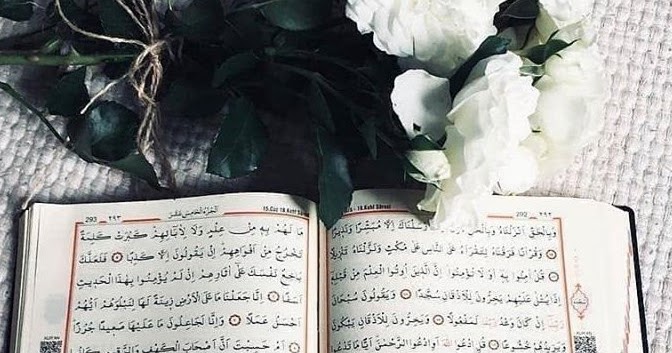 292 ٢٩٢
18.Kehf Sûresi
وَبِالْحَقِّ اَنْزَلْنَاهُ وَبِالْحَقِّ اِلَّا مُبَشِّرًا وَنَذِيرًا
وَقُرْاٰنًا فَرَقْنَاهُ لِتَقْرَاَهُ عَلَى النَّاسِ عَلٰى مُكْثٍ وَنَزَّلْنَاهُ تَنْزِيلًا
قُلْ اٰمِنُوا بِهِٓ اَوْ لَا تُؤْمِنُوا اِنَّ الَّذِينَ اُوتُوا الْعِلْمَ مِنْ قَبْلِهِ
اِذَا يُتْلٰى عَلَيْهِمْ يَخِرُّونَ لِلْاَذْقَانِ سُجَّدًا وَيَقُولُونَ سُبْحَانَ
رَبِّنَا اِنْ كَانَ وَعْدُ رَبِّنَا لَمَفْعُولًا وَيَخِرُّونَ لِلْاَذْقَانِ يَبْكُونَ
وَيَزِيدُهُمْ خُشُوعًا قُلِ ادْعُوا اللّٰهَ اَوِ ادْعُوا الرَّحْمٰنَ اَيًّا مَا تَدْعُوا
293 ٢٩٣
اَلْجُزْءُ الْخَامِسَ عَشَرَ
15.Cüz 18.Kehf Sûresi
مَا لَهُمْ بِهِ مِنْ عِلْمٍ وَلَا لِاٰبَائِهِمْ كَبُرَتْ كَلِمَةً
تَخْرُجُ مِنْ اَفْوَاهِهِمْ اِنْ يَقُولُونَ اِلَّا كَذِبًا فَلَعَلَّكَ
بَاخِعٌ نَفْسَكَ عَلٰى اٰثَارِهِمْ اِنْ لَمْ يُؤْمِنُوا بِهٰذَا الْحَدِيثِ
اَسَفًا اِنَّا جَعَلْنَا مَا عَلَى الْاَرْضِ زِينَةً لَهَا لِنَبْلُوَهُمْ اَيُّهُمْ
اَحْسَنُ عَمَلًا وَاِنَّا لَجَاعِلُونَ مَا عَلَيْهَا صَعِيدًا جُرُزًا
اَمْ حَسِبْتَ اَنَّ اَصْحَابَ الْكَهْفِ وَالرَّقِيمِ كَانُوا